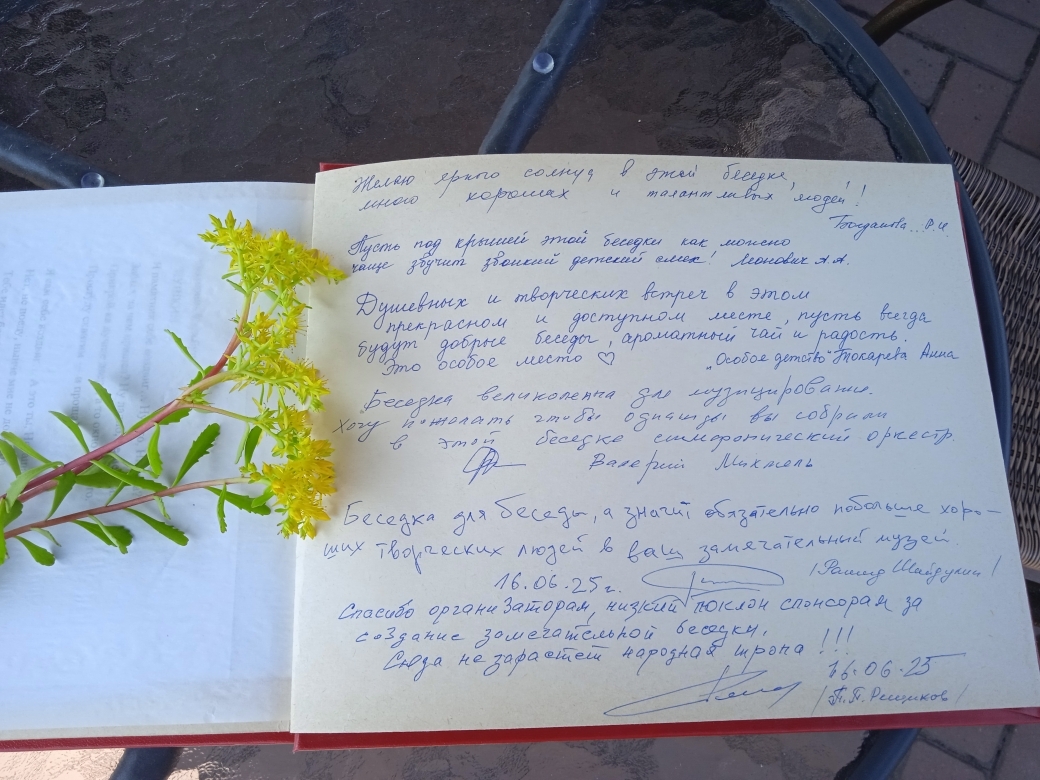 Желаю яркого солнца в этой беседке,
много хороших и талантливых людей!
Богданова Р.И.
Пусть под крышей этой беседки как можно
чаще звучит звонкий детский смех! Леонович А.А.
Душевных и творческих встреч в этом
прекрасном и доступном месте, пусть всегда
будут добрые беседы, ароматный чай и радость.
Это особое место ♡ "Особое детство" Токарева Анна
Беседка великолепна для музицирования.
Хочу пожелать чтобы однажды вы собрали
в этой беседке симфонический оркестр.
Валерий
Беседка для беседы, а значит, обязательно побольше хоро-
ших творческих людей в ваш замечательный музей.
16.06.25г. /Рашид Шайдулин/
Спасибо организаторам, низкий поклон спонсорам за
создание замечательной беседки.
Сюда не зарастет народная тропа !!!
16.06.25
/П.П. Рещиков/